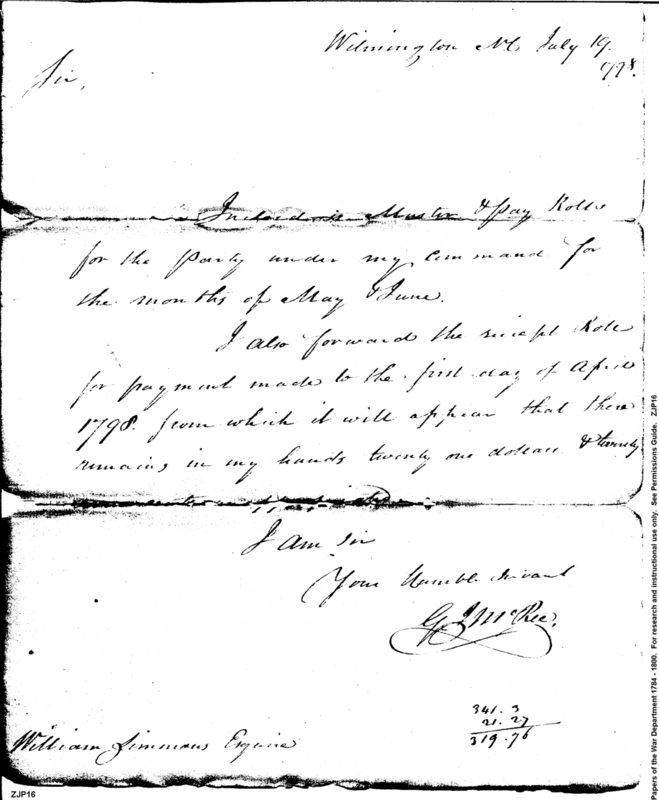 Wilmington NC July 19.
1798.
Sir,
Inclosed is Muster & Pay Rolls
for the Party under my command for
the months of May & June.
I also forward the receipt Roll
for payment made to the first day of April
1798. from which it will appear that there
remains in my hands twenty one dollars & twenty
I am Sir
Your Humble Servant
G J McRee.
341.3
21.27
319.76
William Simmons Esquire
ZJP16
Papers of the War Department 1784 - 1800. For research and instructional use only. See Permissions Guide. ZJP16